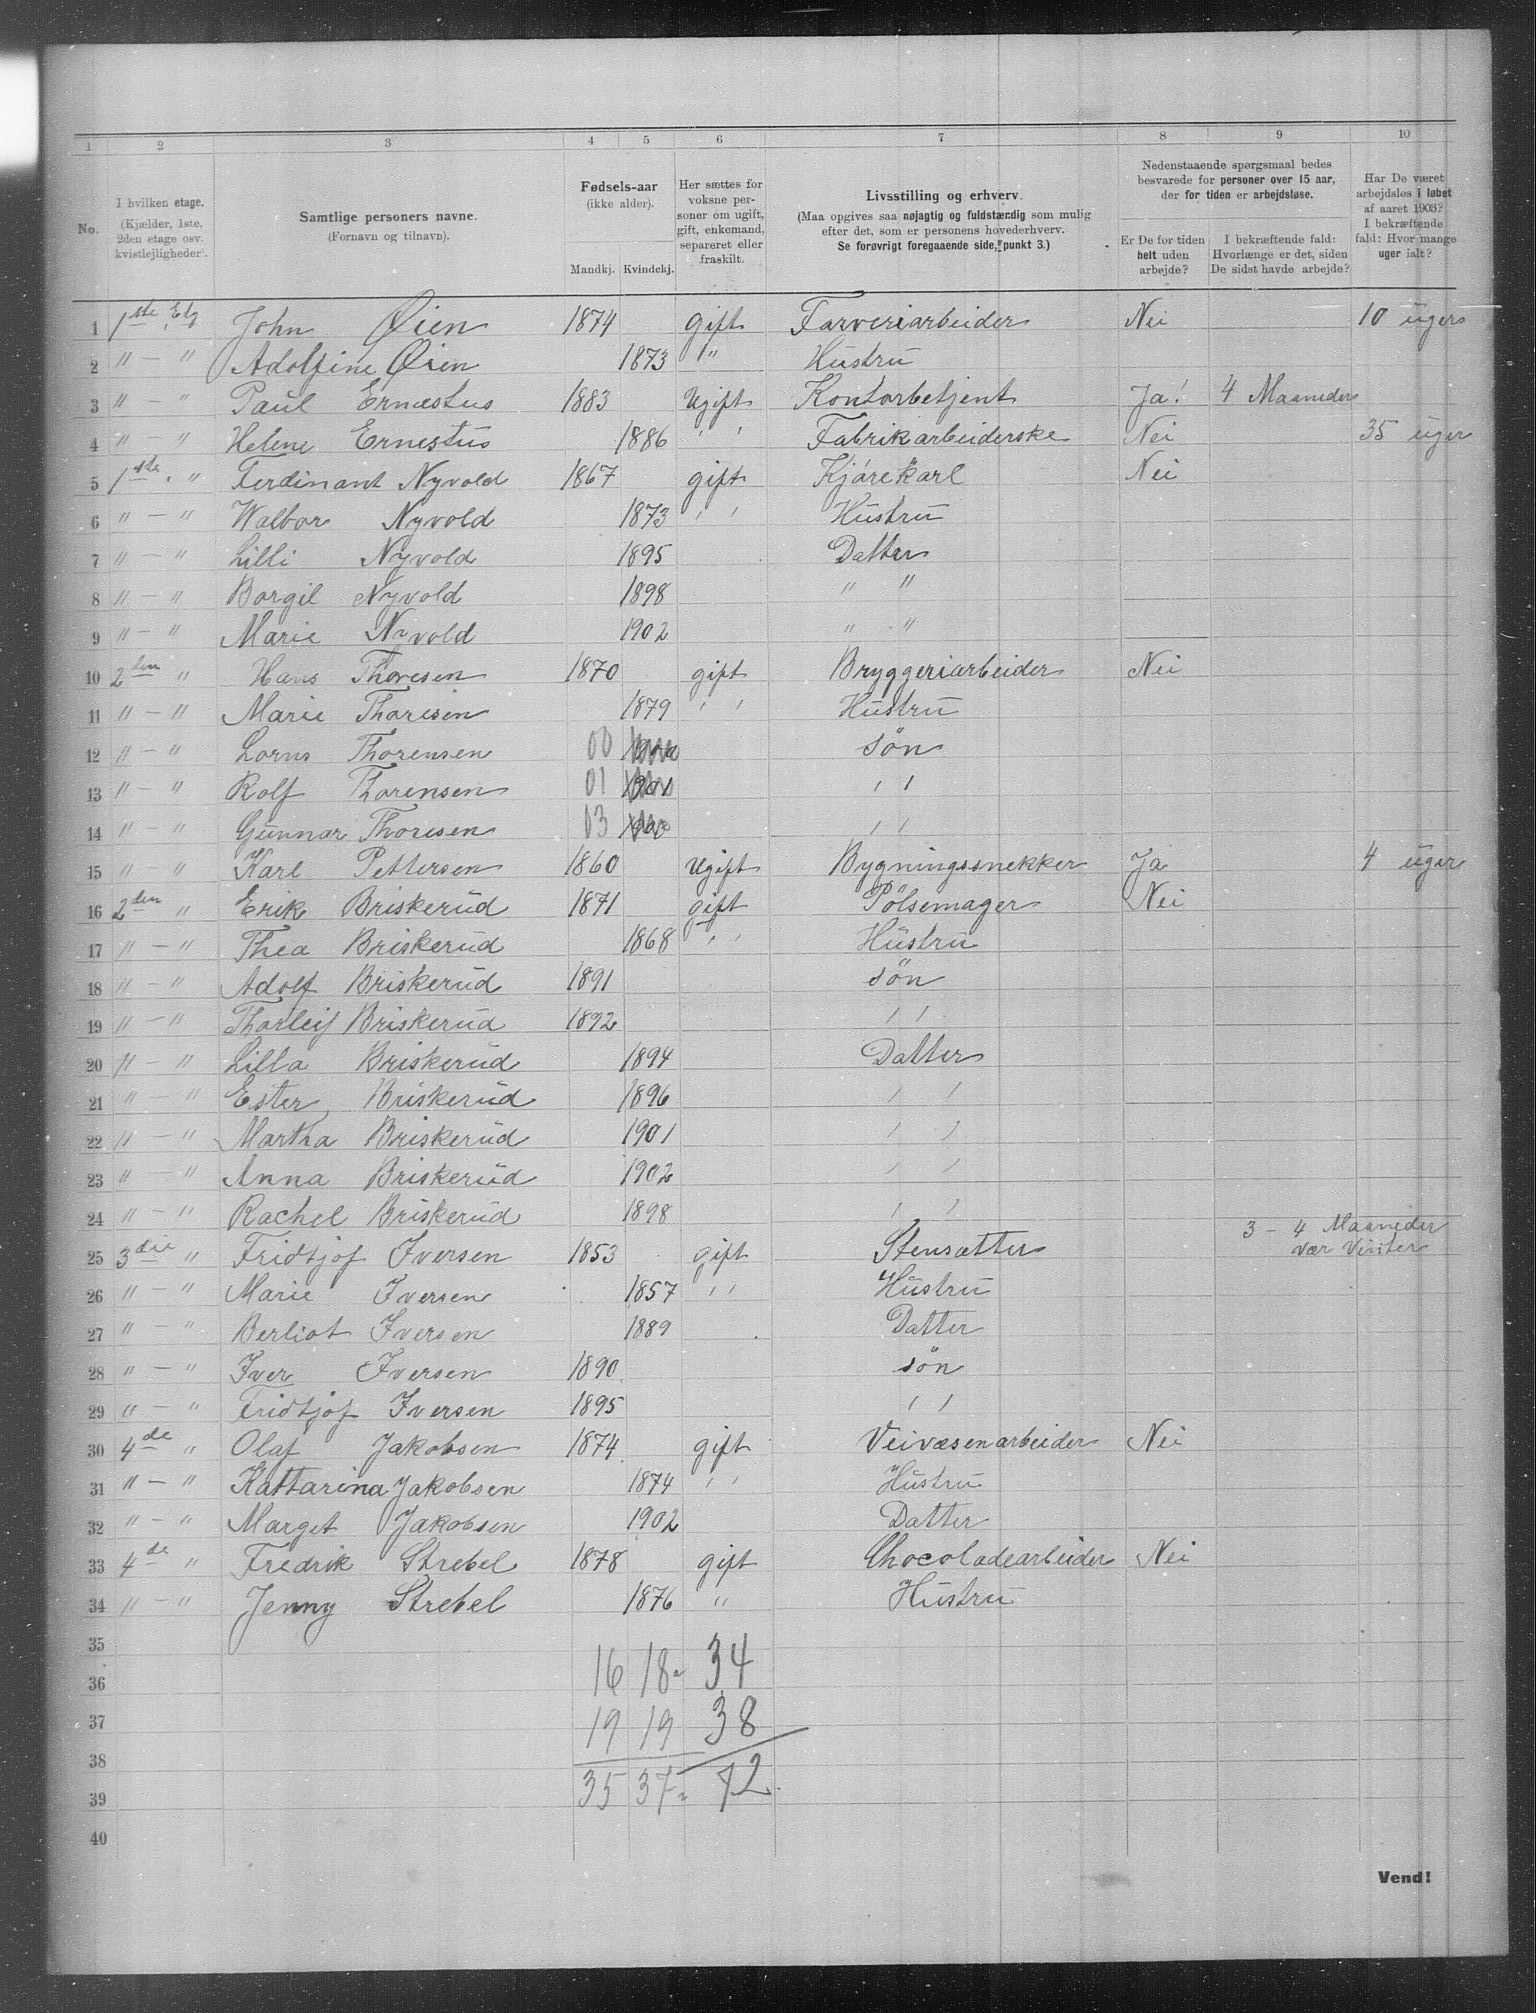 1 2 3 4 5 6 7 8 9 10
No.
I hvilken etage.
(Kjælder, 1ste,
2den etage osv.
kvistlejligheder).
Samtlige personers navne.
(Fornavn og tilnavn).
Fødsels-aar
(ikke alder).
Mandkj. Kvindekj.
Her sættes for
voksne per-
soner om ugift,
gift, enkemand,
separeret eller
fraskilt.
Livsstilling og erhverv.
(Maa opgives saa nøjagtig og fuldstændig som mulig
efter det, som er personens hovederhverv.
Se forøvrigt foregaaende side, punkt 3.)
Nedenstaaende spørgsmaal bedes
besvarede for personer over 15 aar,
der for tiden er arbejdsløse.
Er De for tiden
helt uden
arbejde?
I bekræftende fald:
Hvorlænge er det, siden
De sidst havde arbejde?
Har De været
arbejdsløs i løbet
af aaret 1903?
I bekræftende
fald: Hvor mange
uger ialt?
1 1ste Etg John Øien 1874 gift Farveriarbeider Nei 10 uger
2 " — " Adolfine Øien 1873 " Hustru
3 " — " Paul Ernestus 1883 Ugift Kontorbetjent Ja! 4 Maaneder
4 " — " Helene Ernestus 1886 ' ' Fabrikarbeiderske Nei 35 uger
5 1ste " Ferdinant Nyvold 1867 gift Kjørekarl Nei
6 " — " Walbor Nyvold 1873 ' ' Hustru
7 " — " Lilli Nyvold 1895 Datter
8 " — " Borgil Nyvold 1898 " "
9 " — " Marie Nyvold 1902 " "
10 2den " Hans Thoresen 1870 gift Bryggeriarbeider Nei
11 " — " Marie Thoresen 1879 ' ' Hustru
12 " — " Lorns Thorensen 00 søn
13 " — " Rolf Thorensen 01 ' '
14 " — " Gunnar Thoresen 03 ' '
15 " " Karl Pettersen 1860 Ugift Bygningssnekker Ja 4 uger
16 2den " Erik Briskerud 1871 gift Pølsemager Nei
17 " — " Thea Briskerud 1868 ' ' Hustru
18 " — " Adolf Briskerud 1891 søn
19 " — " Thorleif Briskerud 1892 ' '
20 " — " Lilla Briskerud 1894 Datter
21 " — " Ester Briskerud 1896 ' '
22 " — " Martha Briskerud 1901 ' '
23 " — " Anna Briskerud 1902 ' '
24 " — " Rachel Briskerud 1898 ' '
25 3die " Fridtjof Iversen 1853 gift Stensætter 3 - 4 Maaneder
vær Vinter
26 " — " Marie Iversen 1857 ' ' Hustru
27 " — " Berliot Iversen 1889 Datter
28 " — " Iver Iversen 1890 søn
29 " — " Fridtjof Iversen 1895 ' '
30 4de " Olaf Jakobsen 1874 gift Veivæsenarbeider Nei
31 " — " Kattarina Jakobsen 1874 ' ' Hustru
32 " — " Marget Jakobsen 1902 Datter
33 4de " Fredrik Strebel 1878 gift Chocoladearbeider Nei
34 " — " Jenny Strebel 1876 " Hustru
35
36 16 18 - 34
37 19 19 38
38
39 35 37 - 72
40
Vend!